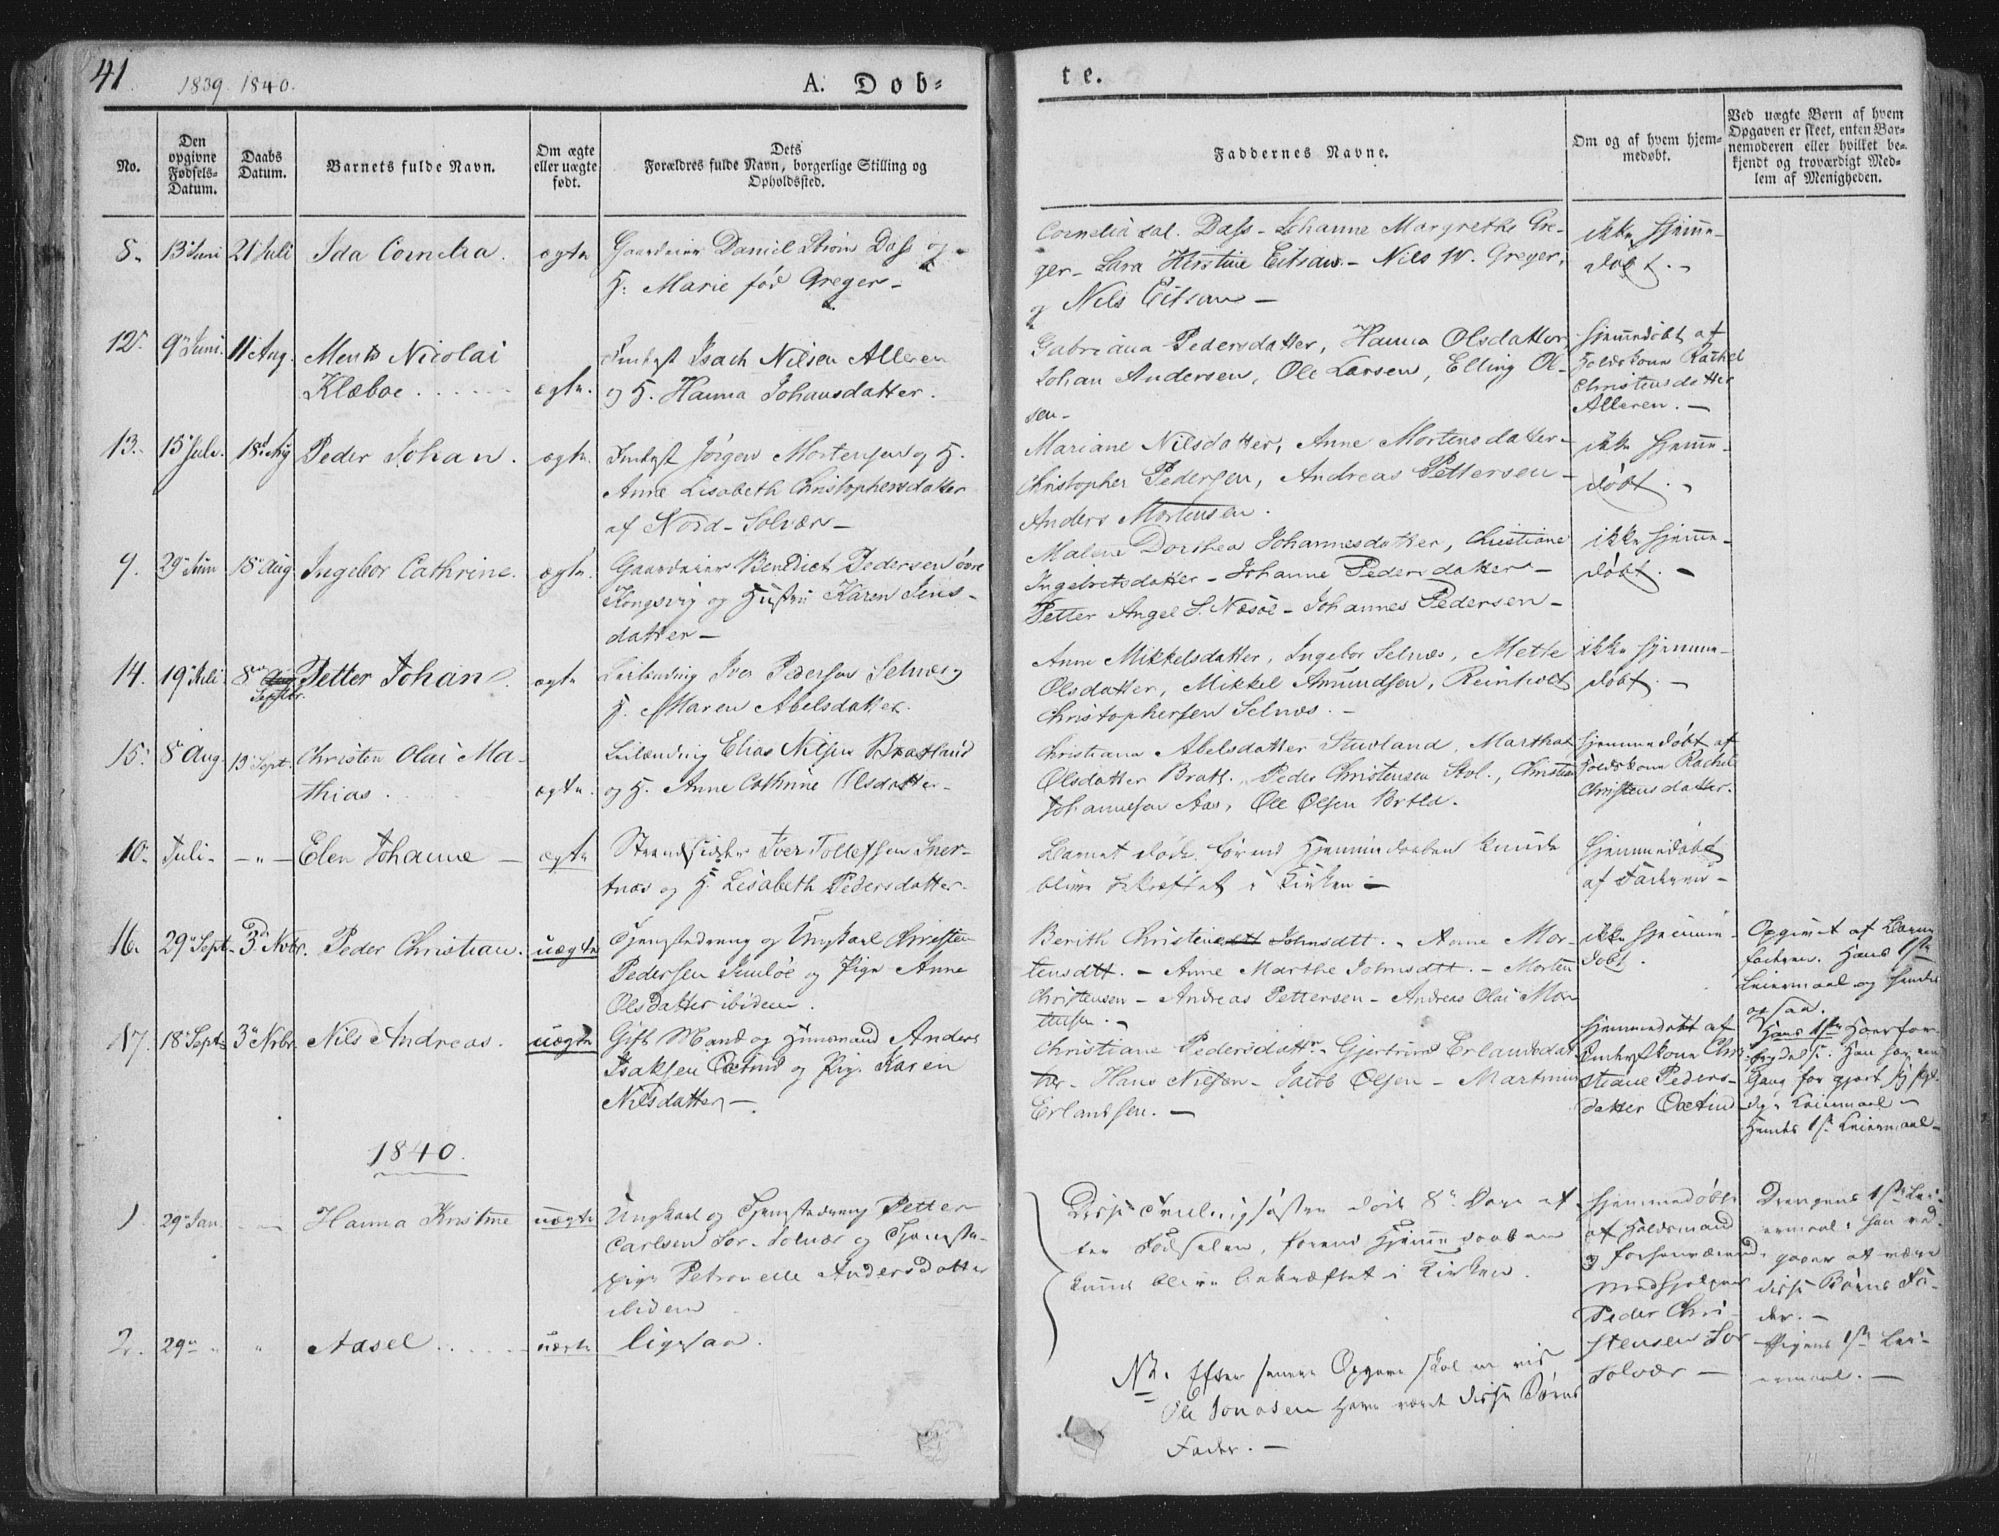 41.
1839. 1840.
A. Dob-
te.
No.
Den opgivne Fødsels-Datum.
Daabs Datum.
Barnets fulde Navn.
Om ægte eller uægte født.
Dets Forældres fulde Navn, borgerlige Stilling og Opholdssted.
Faddernes Navne.
Om og af hvem hjemmedøbt.
Ved uægte Børn af hvem Opgaven er skeet, enten Barnemoderen eller hvilket bekjendt og troværdigt Medlem af Menigheden.
8. 13 Juni 21 Juli Ida Cornelia. ægte
Gaardeier Daniel Strøm Dass og
H. Marie fød Greger-
Cornelia sal. Dass - Johanne Margrethe Gre-
ger - Lara Kirstine - Nils W. Greger,
og Nils
ikke hjemme-
døbt.
12. 9 Juni. 11 Aug. Ments Nicolai
Klæboe ægte.
Inderst Isach Nilsen Alleren
og H. Hanna Johansdatter.
Gabriana Pedersdatter, Hanna Olsdatter,
Johan Andersen, Ole Larsen, Elling Ol-
sen-
hjemmedøbt af
Rachel
Christensdatter
Alleren. -
13. 15 Juli. 18 Aug Peder Johan. ægte.
Inderst Jørgen Mortensen og H.
Anne Lisabeth Christophersdatter
af Nord-Solvær-
Mariane Nilsdatter, Anne Mortensdatter-
Christopher Pedersen, Andreas Pettersen-
Anders Mortensen.
ikke hjemme-
døbt.
9. 29 Juni 18 Aug. Ingebor Cathrine. ægte.
Gaardeier Benedict Pedersen øvre
Kongsvig og Hustru Karen Jens-
datter-
Malene Dorthea Johannesdatter, Christiane
Ingebretsdatter - Johanne Pedersdatter-
Petter Angel S. Næsøe - Johannes Pedersen-
ikke hjemme-
døbt. -
14. 19 Juli. 8 Septbr. Petter Johan. ægte
Leilending Iver Pedersen Selnæs og
H. Maren Abelsdatter.
Anne Mikkelsdatter, Ingebor Selnæs, Mette
Olsdatter, Mikkel Amundsen, Reinholt
Christophersen Selnæs. -
ikke hjemme-
døbt. -
15. 8 Aug. 15 Sept. Christen Olai Ma-
thias. ægte.
Leilænding Elias Nilsen Bratland
og H. Anne Cathrine Olsdatter-
Christiana Abelsdatter Stuvland, Martha
Olsdatter Bratl., Peder Christensen Stvl., Christen
Johannesen Aas, Ole Olsen Brtld.
hjemmedøbt af
Rachel
Christensdatter.
10. Juli - - " - Elen Johanne - ægte
Strandsidder Iver Tollefsen Sner-
tnæs og H. Lisabeth Pedersdatter.
Barnet døde, førend Hjemmedaaben kunde
blive bekræftet i Kirken -
Hjemmedøbt
af Faderen -
16. 29 Sept. 3 Novbr. Peder Christian. uægte
Tjenestedreng og Ungkarl Christen
Pedersen og Pige Anne
Olsdatter ibidem.
Berith Johnsdtt. - Anne Mor-
tensdtt. - Anne Marthe Johnsdtt. - Morten
Christensen - Andreas Pettersen - Andreas Olai Mor-
tensen. -
ikke hjemme-
døbt.
Opgivet af Barne-
faderen. Hans 1ste
Leiermaal og hendes
ogsaa.
17. 18 Sept. 3 Novbr. Nils Andreas. uægte
Gift Mand og Huusmand Anders
Isaksen Oxtind og Pige Karen
Nilsdatter -
Christiane Pedersdatter - Gjertrud Erlandsdat-
ter - Hans Nilsen - Jacob Olsen - Martinus
Erlandsen. -
hjemmedøbt af
Inderstkone Chri-
stiane Peders-
datter Oxtind -
Hans 1ste Hoerfor-
Gang før gjort sig skyl-
dig i Leiermaal -
Hendes 1ste Leiermaal -
1840.
1. 29 Jan. - " - Hanna Kristine uægte
Ungkarl og Tjenestedreng Petter
Carlsen Sør-Solvær og Tjeneste-
pige Petronelle Andersdatter
ibidem
Disse Tvillingsøstre døde 8 Dage ef-
ter Fødselen, førend Hjemmedaaben
kunde blive bekræftet i Kirken.
hjemmedøbt
af
og forhenværende
medhjelper
Peder Chri-
stensen Sør
Solvær -
Drengens 1ste Lei-
ermaal; han ved-
gaaer at være
disse Børns Fa-
der. -
Pigens 1ste Lei-
ermaal. -
2. 29 " " Aasel uægte ligesaa.
Nb. Efter senere Opgave skal en vis
Ole Jonasen have været disse Børns
Fader. -